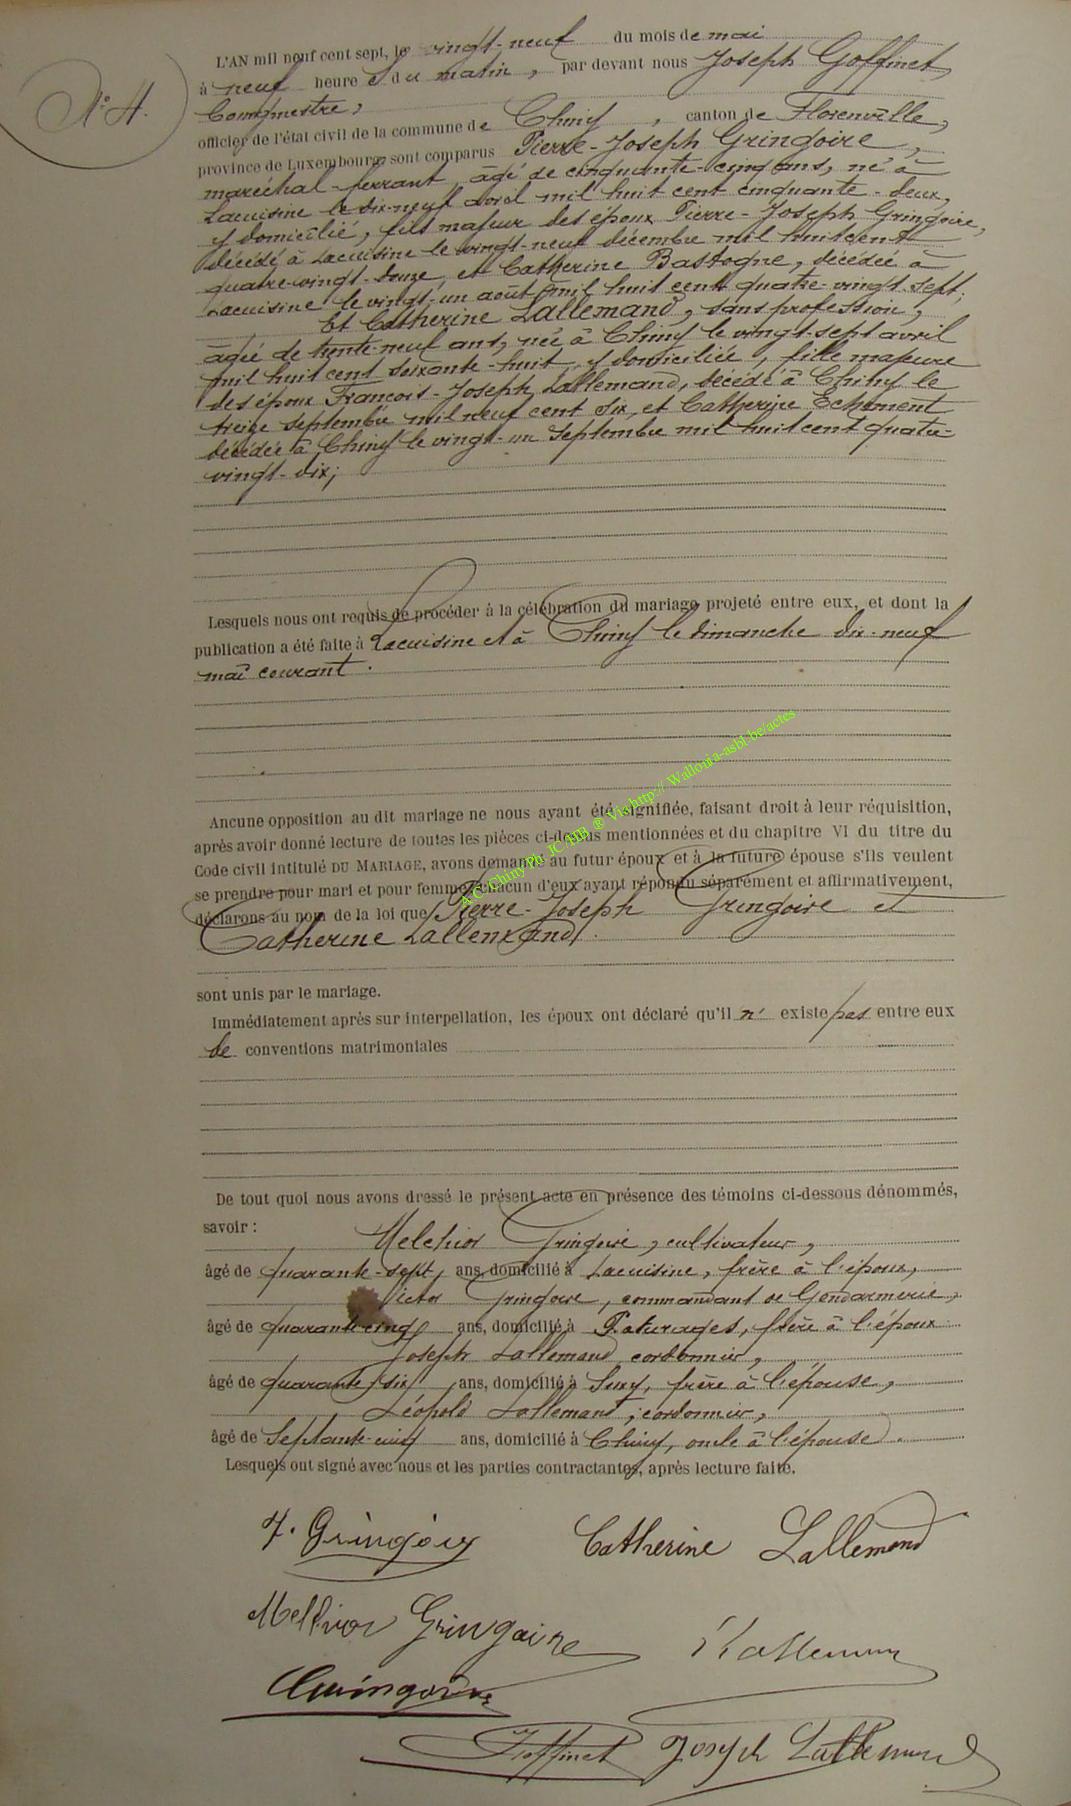 N° 4.
L'AN mil neuf cent sept, le vingt-neuf du mois de mai
à neuf heures du matin, par devant nous Joseph Goffinet,
Bourgmestre,
officier de l'état civil de la commune de Chiny, canton de Florenville,
province de Luxembourg, sont comparus Pierre-Joseph Gringoire,
maréchal-ferrant, âgé de cinquante-cinq ans, né à
Lacuisine le dix-neuf avril mil huit cent cinquante-deux,
y domicilié, fils majeur des époux Pierre-Joseph Gringoire,
décédé à Lacuisine le vingt-neuf décembre mil huit cent
quatre-vingt-douze, et Catherine Bastogne, décédée à
Lacuisine le vingt-un août mil huit cent quatre-vingt-sept;
Et Catherine Lallemand, sans profession,
âgée de trente-neuf ans, née à Chiny le vingt-sept avril
mil huit cent soixante-huit, y domiciliée, fille majeure
des époux François-Joseph Lallemand, décédé à Chiny le
treize septembre mil neuf cent six, et Catherine Echement
décédée à Chiny le vingt-un septembre mil huit cent quatre-
vingt-dix;
Lesquels nous ont requis de procéder à la célébration du mariage projeté entre eux, et dont la
publication a été faite à Lacuisine et à Chiny le dimanche dix-neuf
mai courant.
Aucune opposition au dit mariage ne nous ayant été signifiée, faisant droit à leur réquisition,
après avoir donné lecture de toutes les pièces ci-dessus mentionnées et du chapitre VI du titre du
Code civil intitulé DU MARIAGE, avons demandé au futur époux et à la future épouse s'ils veulent
se prendre pour mari et pour femme, chacun d'eux ayant répondu séparément et affirmativement,
déclarons au nom de la loi que Pierre-Joseph Gringoire et
Catherine Lallemand.
A.C. Chiny Ph JC/HB ® Via http:// Wallonia-asbl.be/actes
sont unis par le mariage.
Immédiatement après sur interpellation, les époux ont déclaré qu'il n' existe pas entre eux
de conventions matrimoniales
De tout quoi nous avons dressé le présent acte en présence des témoins ci-dessous dénommés,
savoir :
Melchior Gringoire, cultivateur,
âgé de quarante-sept ans, domicilié à Lacuisine, frère à l'époux,
Victor Gringoire, commandant de Gendarmerie,
âgé de quarante-cinq ans, domicilié à Paturages, frère à l'époux
Joseph Lallemand, cordonnier,
âgé de quarante-six ans, domicilié à Suxy, frère à l'épouse,
Léopold Lallemant, cordonnier,
âgé de Septante-cinq ans, domicilié à Chiny, oncle à l'épouse.
Lesquels ont signé avec nous et les parties contractantes, après lecture faite.
Catherine Lallemand
Melchior Gringoire
Goffinet Joseph Lallemand